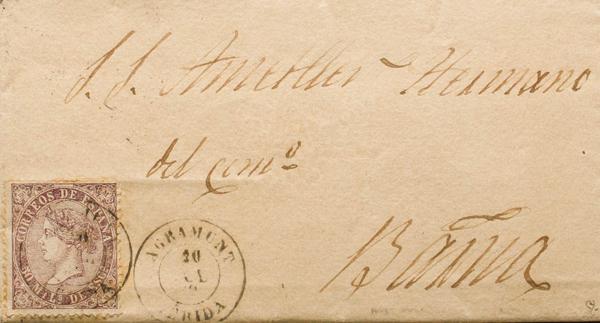 S. S. Ametller Hermano
del com.º
Barna
CORREOS DE ESPAÑA
50 MIL.S DE E.
AGRAMUNT
20
LERIDA